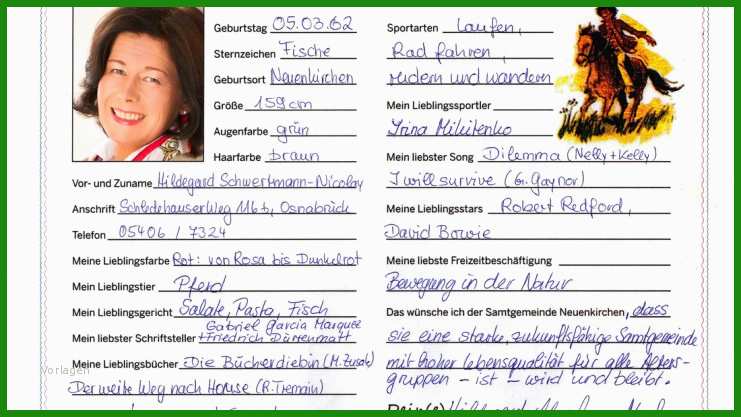 Geburtstag 05.03.62
Sternzeichen Fische
Geburtsort Neuenkirchen
Größe 159 cm
Augenfarbe grün
Haarfarbe braun
Vor- und Zuname Hildegard Schwertmann-Nicolay
Anschrift Schledehauser Weg 116 b, Osnabrück
Telefon 05406 / 7324
Meine Lieblingsfarbe Rot: von Rosa bis Dunkelrot
Mein Lieblingstier Pferd
Mein Lieblingsgericht Salate, Pasta, Fisch
Gabriel Garcia Marquez
Mein liebster Schriftsteller Friedrich Dürrenmatt
Meine Lieblingsbücher Die Bücherdiebin (M. Zusak)
Der weite Weg nach Hause (R. Tremain)
Vorlagen
Sportarten Laufen,
Rad fahren,
rudern und wandern
Mein Lieblingssportler
Irina Mikitenko
Mein liebster Song Dilemma (Nelly + Kelly)
I will survive (G. Gaynor)
Meine Lieblingsstars Robert Redford,
David Bowie
Meine liebste Freizeitbeschäftigung
Bewegung in der Natur
Das wünsche ich der Samtgemeinde Neuenkirchen, dass
sie eine starke, zukunftsfähige Samtgemeinde
mit hoher Lebensqualität für alle Alters-
gruppen - ist - wird und bleibt.